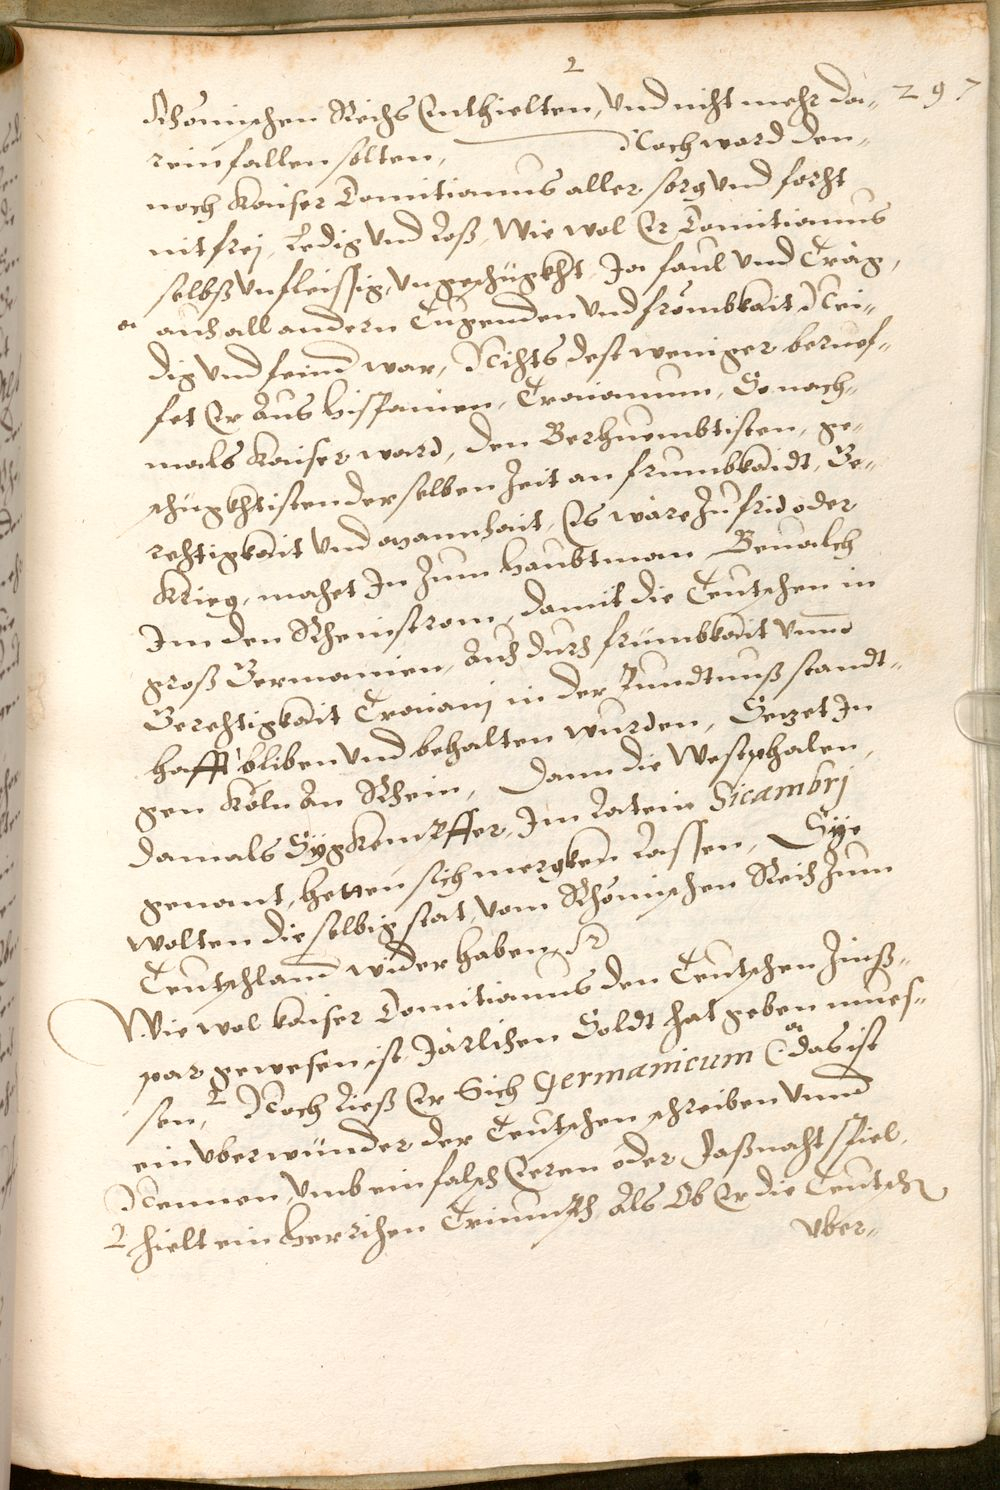 2
297
Rhömischen Reichs Enthielten, Vnd nicht mehr da-
rein fallen solten, Noch ward den-
noch Kaiser Domitianus aller sorg Vnd forcht
nit frej, Ledig Vnd Loß, Wie wol Er Domitianus
selbß Vnfleissig, Vngeschügkht, Ja faul Vnd Träg,
auch all andern Tugenden Vnd frömbkait Nei-
dig Vnd feind war, Nichts dest weniger beruef-
fet Er Aus Hispanien, Traianum, So nach-
mals Kaiser ward, den Berhuembtisten, ge-
schügkhtisten der selben Zeit an frumbkaidt, Ge-
rechtigkait Vnd Mannhait, Es wäre Zu frid oder
Krieg, machet In Zum Haubtman Beualch
Im den Rheinstram, damit die Teutschen in
groß Germanien, Auch durch frümbkait Vnnd
Gerechtigkait Traianj in der Pundtnuß standt-
hafft bliben Vnd behalten wurden, Setzet In
gen Köln An Rhein, Dann die Westphalen,
damals Sÿgkempffer, Im Latein Sicambrj
genant, hetten sich mergken Lassen, Sÿe
wolten die selbig stat, Vom Rhömischen Reich Zum
Teutschland wider haben
Wie wol Kaiser Domitianus den Teutschen Zinß-
par gewesen ist, Järlichen Soldt hat geben mues-
sen, Noch Ließ Er Sich Germanicum das ist
ein Vberwünder der Teutschen schreiben Vnnd
Nennen, Vmb ein falsch Eeren oder Faßnacht spiel,
hielt ein Herrlichen Triumph, Als Ob Er die Teutsch
Vber-